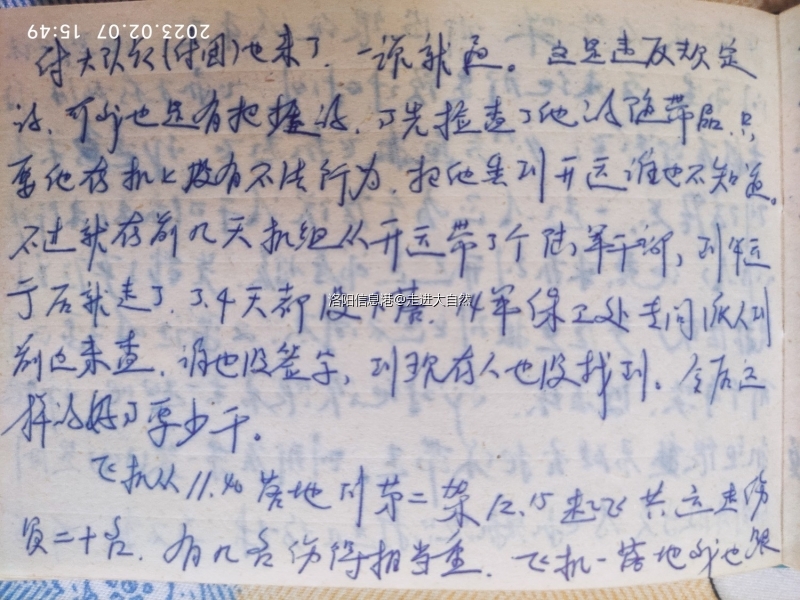 2023.02.07 15:49
付大队长(付团)也来了.一说就通。这是违反规定
的,可我也是有把握的.了先检查了他的随带品.只
要他在机上没有不法行为.把他弄到开远谁也不知道。
不过就在前几天机组从开远带了个陆军干部,到
于后就走了.3.4天都没 军保卫处专门派人到
前边来查.谁也没签字,到现在人也没找到。今后这
样的好了要少干。
飞机从11.40落地到第二架12.15起飞共运走伤
员二十名.有几名伤得相当重.飞机一落地我也
洛阳信息港@走进大自然